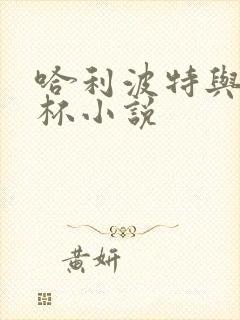 哈利波特與
杯小說
黃妍